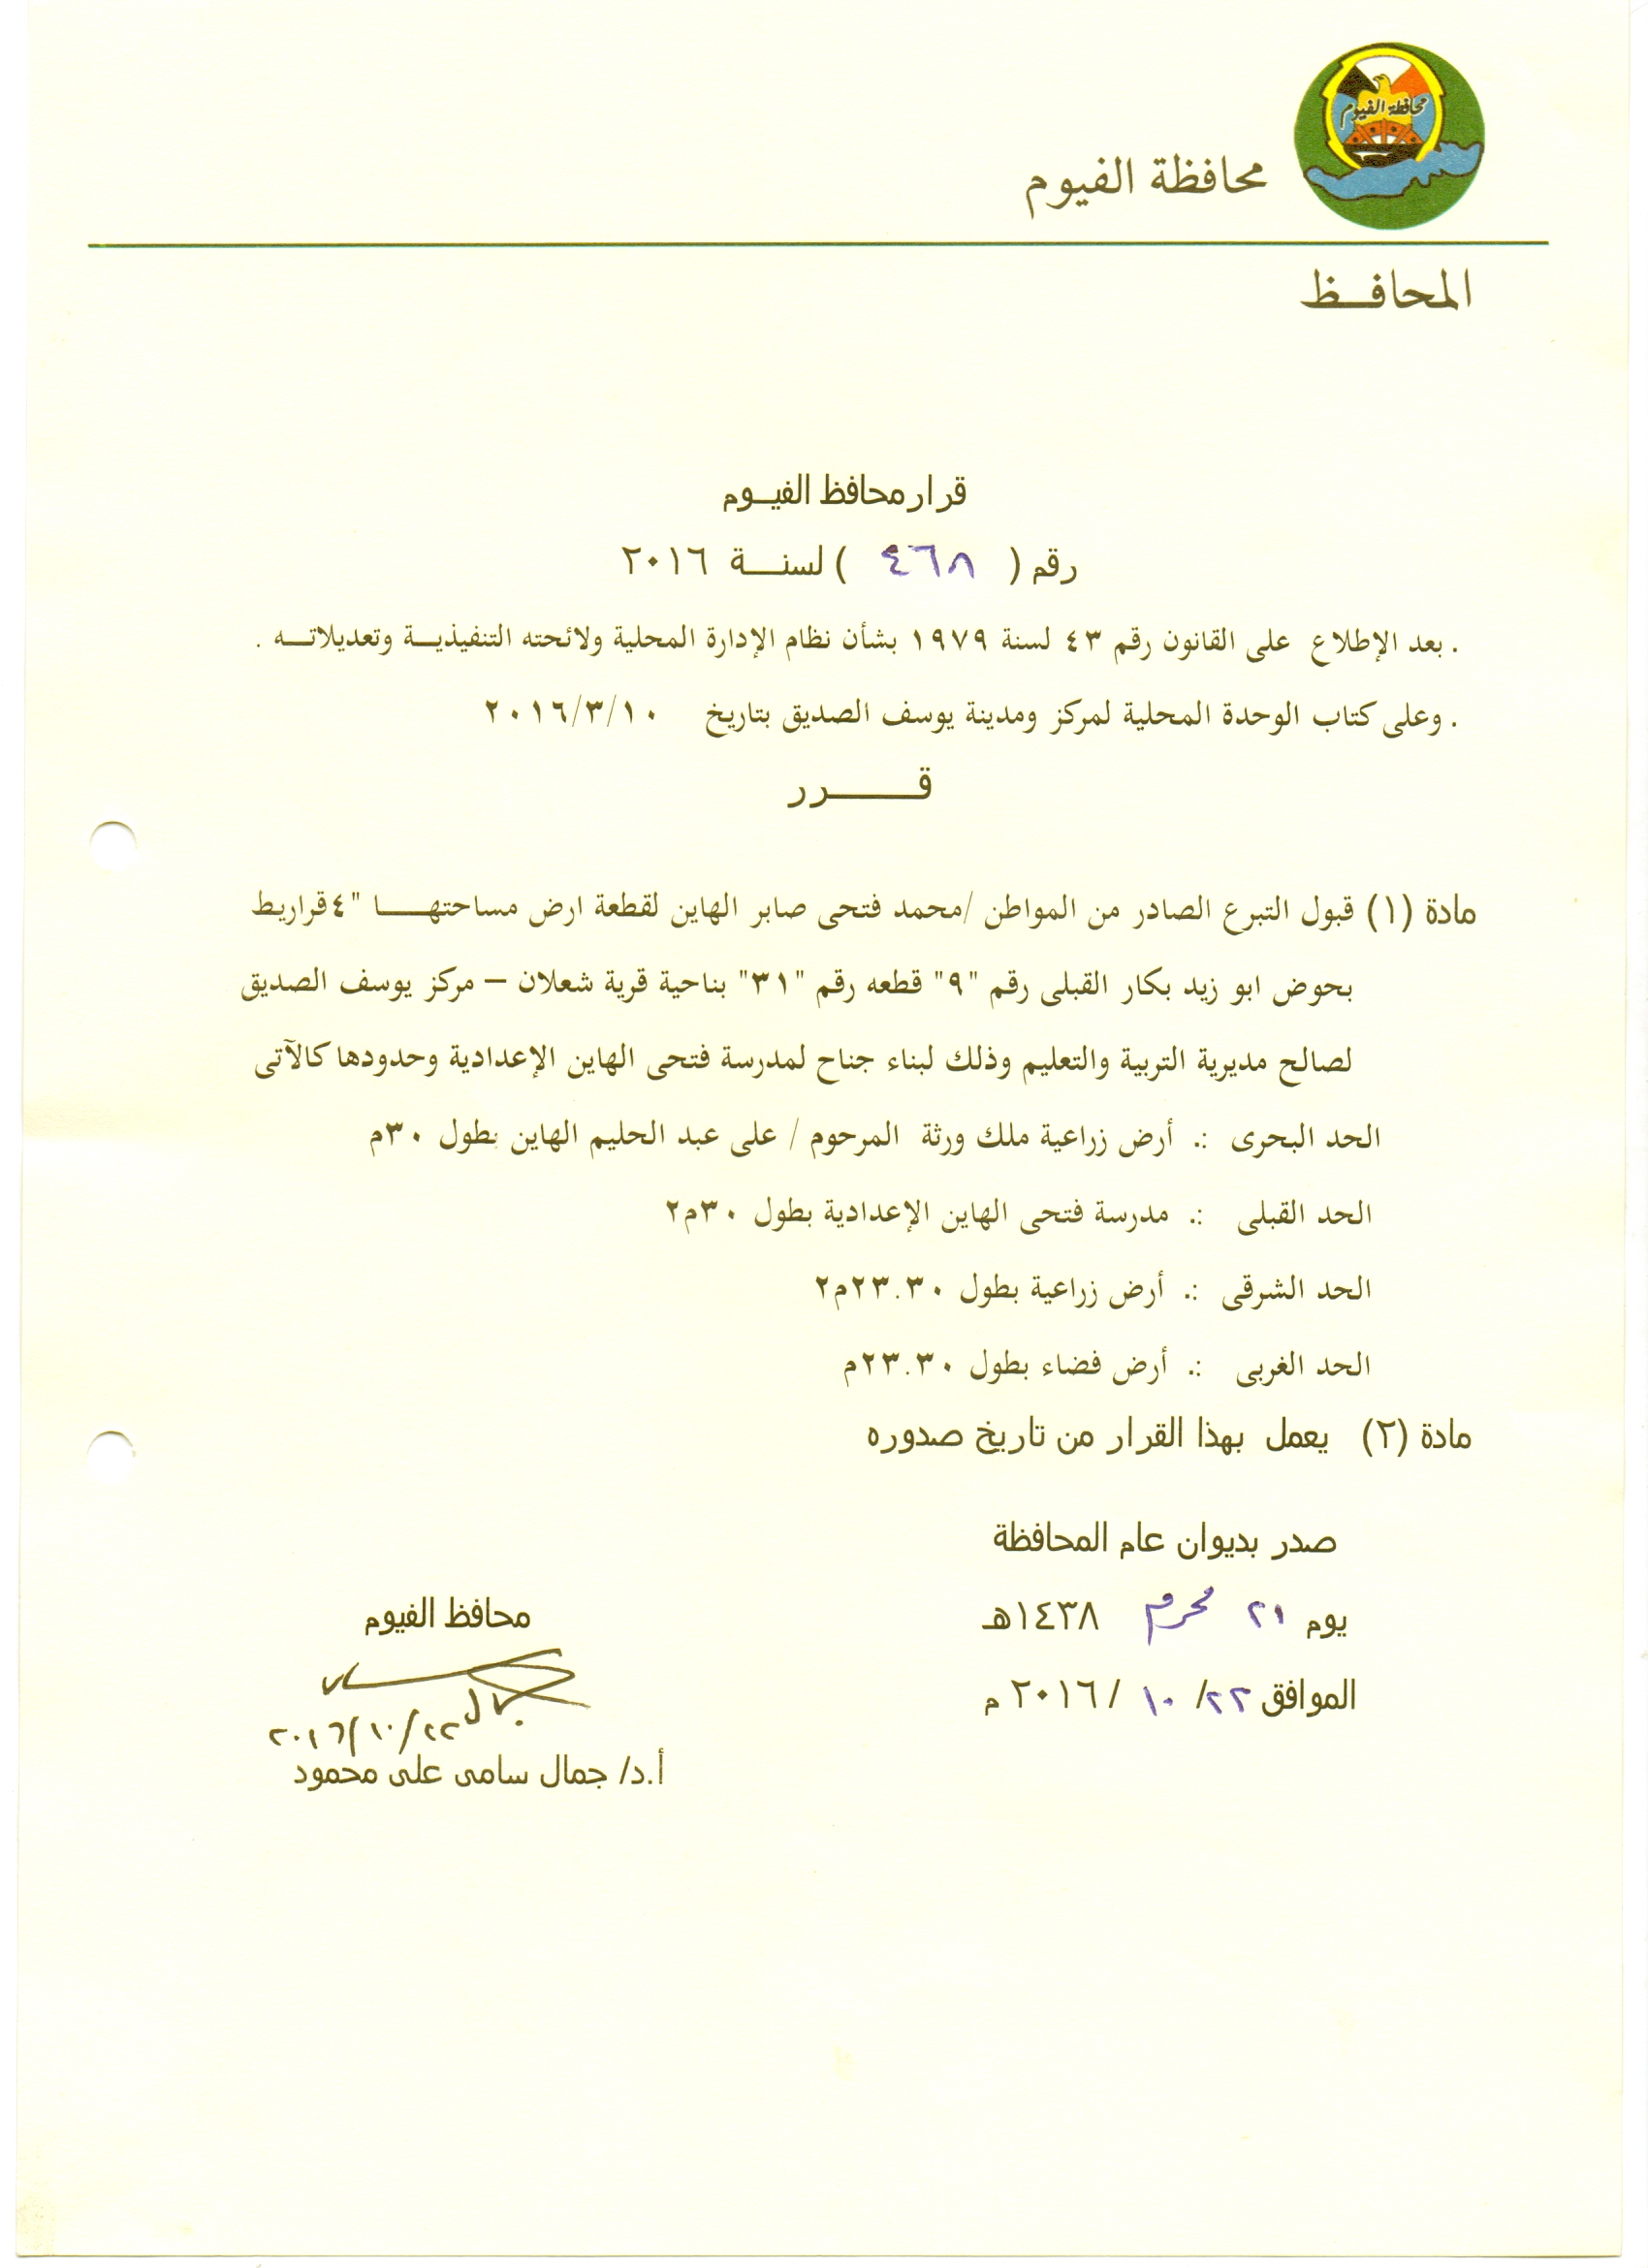 محافظة الفيوم
محافظة الفيوم
المحافــظ
قرار محافظ الفيــوم
رقم ( ٤٦٨ ) لسنــة ٢٠١٦
. بعد الإطلاع على القانون رقم ٤٣ لسنة ١٩٧٩ بشأن نظام الإدارة المحلية ولائحته التنفيذيــة وتعديلاتــه .
. وعلى كتاب الوحدة المحلية لمركز ومدينة يوسف الصديق بتاريخ ٢٠١٦/٣/١٠
قــــرر
مادة (١) قبول التبرع الصادر من المواطن /محمد فتحى صابر الهاين لقطعة ارض مساحتهــــا "٤قراريط
بحوض ابو زيد بكار القبلى رقم "٩" قطعه رقم "٣١" بناحية قرية شعلان – مركز يوسف الصديق
لصالح مديرية التربية والتعليم وذلك لبناء جناح لمدرسة فتحى الهاين الإعدادية وحدودها كالآتى
الحد البحرى :. أرض زراعية ملك ورثة المرحوم / على عبد الحليم الهاين بطول ٣٠م
الحد القبلى :. مدرسة فتحى الهاين الإعدادية بطول ٣٠م٢
الحد الشرقى :. أرض زراعية بطول ٢٣.٣٠م٢
الحد الغربى :. أرض فضاء بطول ٢٣.٣٠م
مادة (٢) يعمل بهذا القرار من تاريخ صدوره
صدر بديوان عام المحافظة
يوم ٢١ محرم ١٤٣٨هـ
الموافق ٢٢/ ١٠ /٢٠١٦ م
محافظ الفيوم
٢٠١٦/١٠/٢٢
أ.د/ جمال سامى على محمود